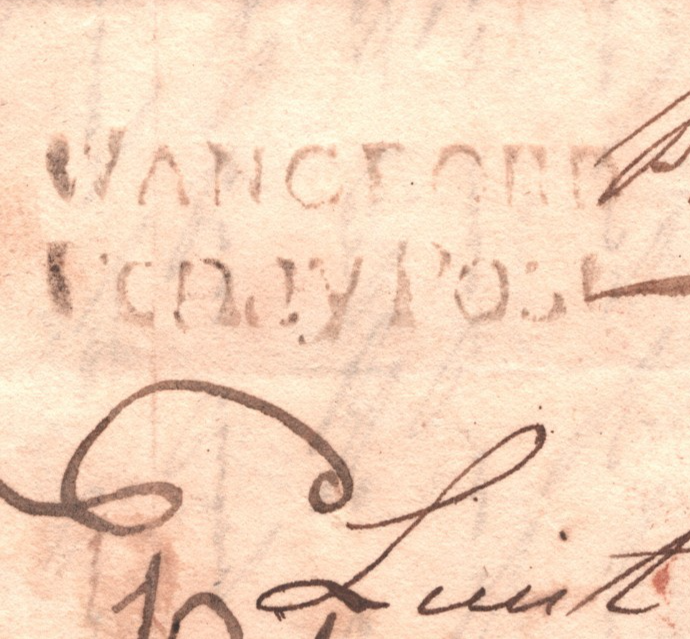 WANGFORD
Penny Post
Luit